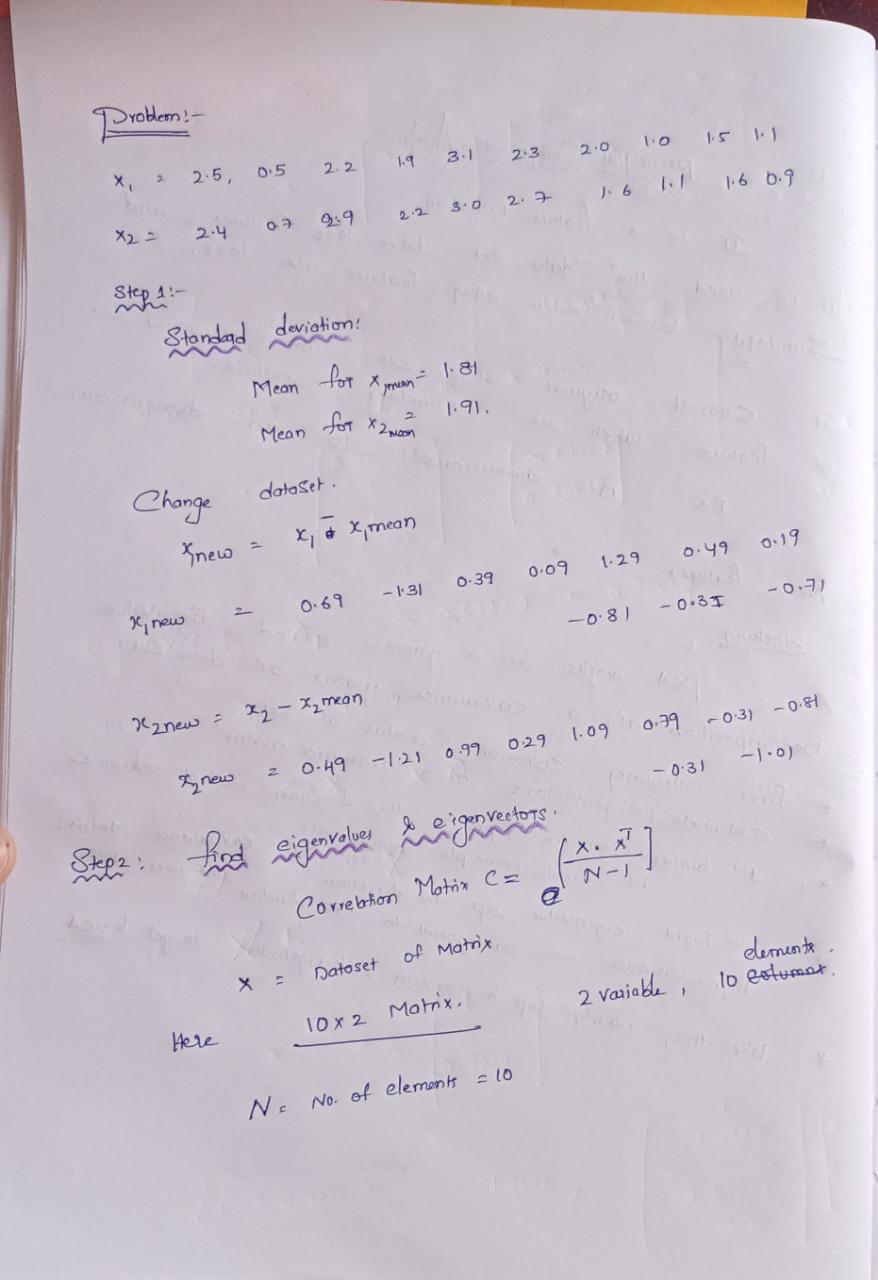 Problem:-
x₁ = 2.5, 0.5 2.2 1.9 3.1 2.3 2.0 1.0 1.5 1.1
x₂ = 2.4 0.7 2.9 2.2 3.0 2.7 1.6 1.1 1.6 0.9
Step 1:-
Standard deviation:
Mean for x₁mean = 1.81
Mean for x₂mean = 1.91.
Change dataset.
x₁new = x₁ - x₁mean
x₁new = 0.69 -1.31 0.39 0.09 1.29 0.49 0.19
-0.81 -0.31 -0.71
x₂new = x₂ - x₂mean
x₂new = 0.49 -1.21 0.99 0.29 1.09 0.79 -0.31 -0.81
-0.31 -1.01
Step 2: find eigenvalues & eigenvectors.
Correlation Matrix C = [X. Xᵀ / N-1]
X = Dataset of Matrix
Here 10 x 2 Matrix. 2 variable, 10 columns. elements.
N = No. of elements = 10